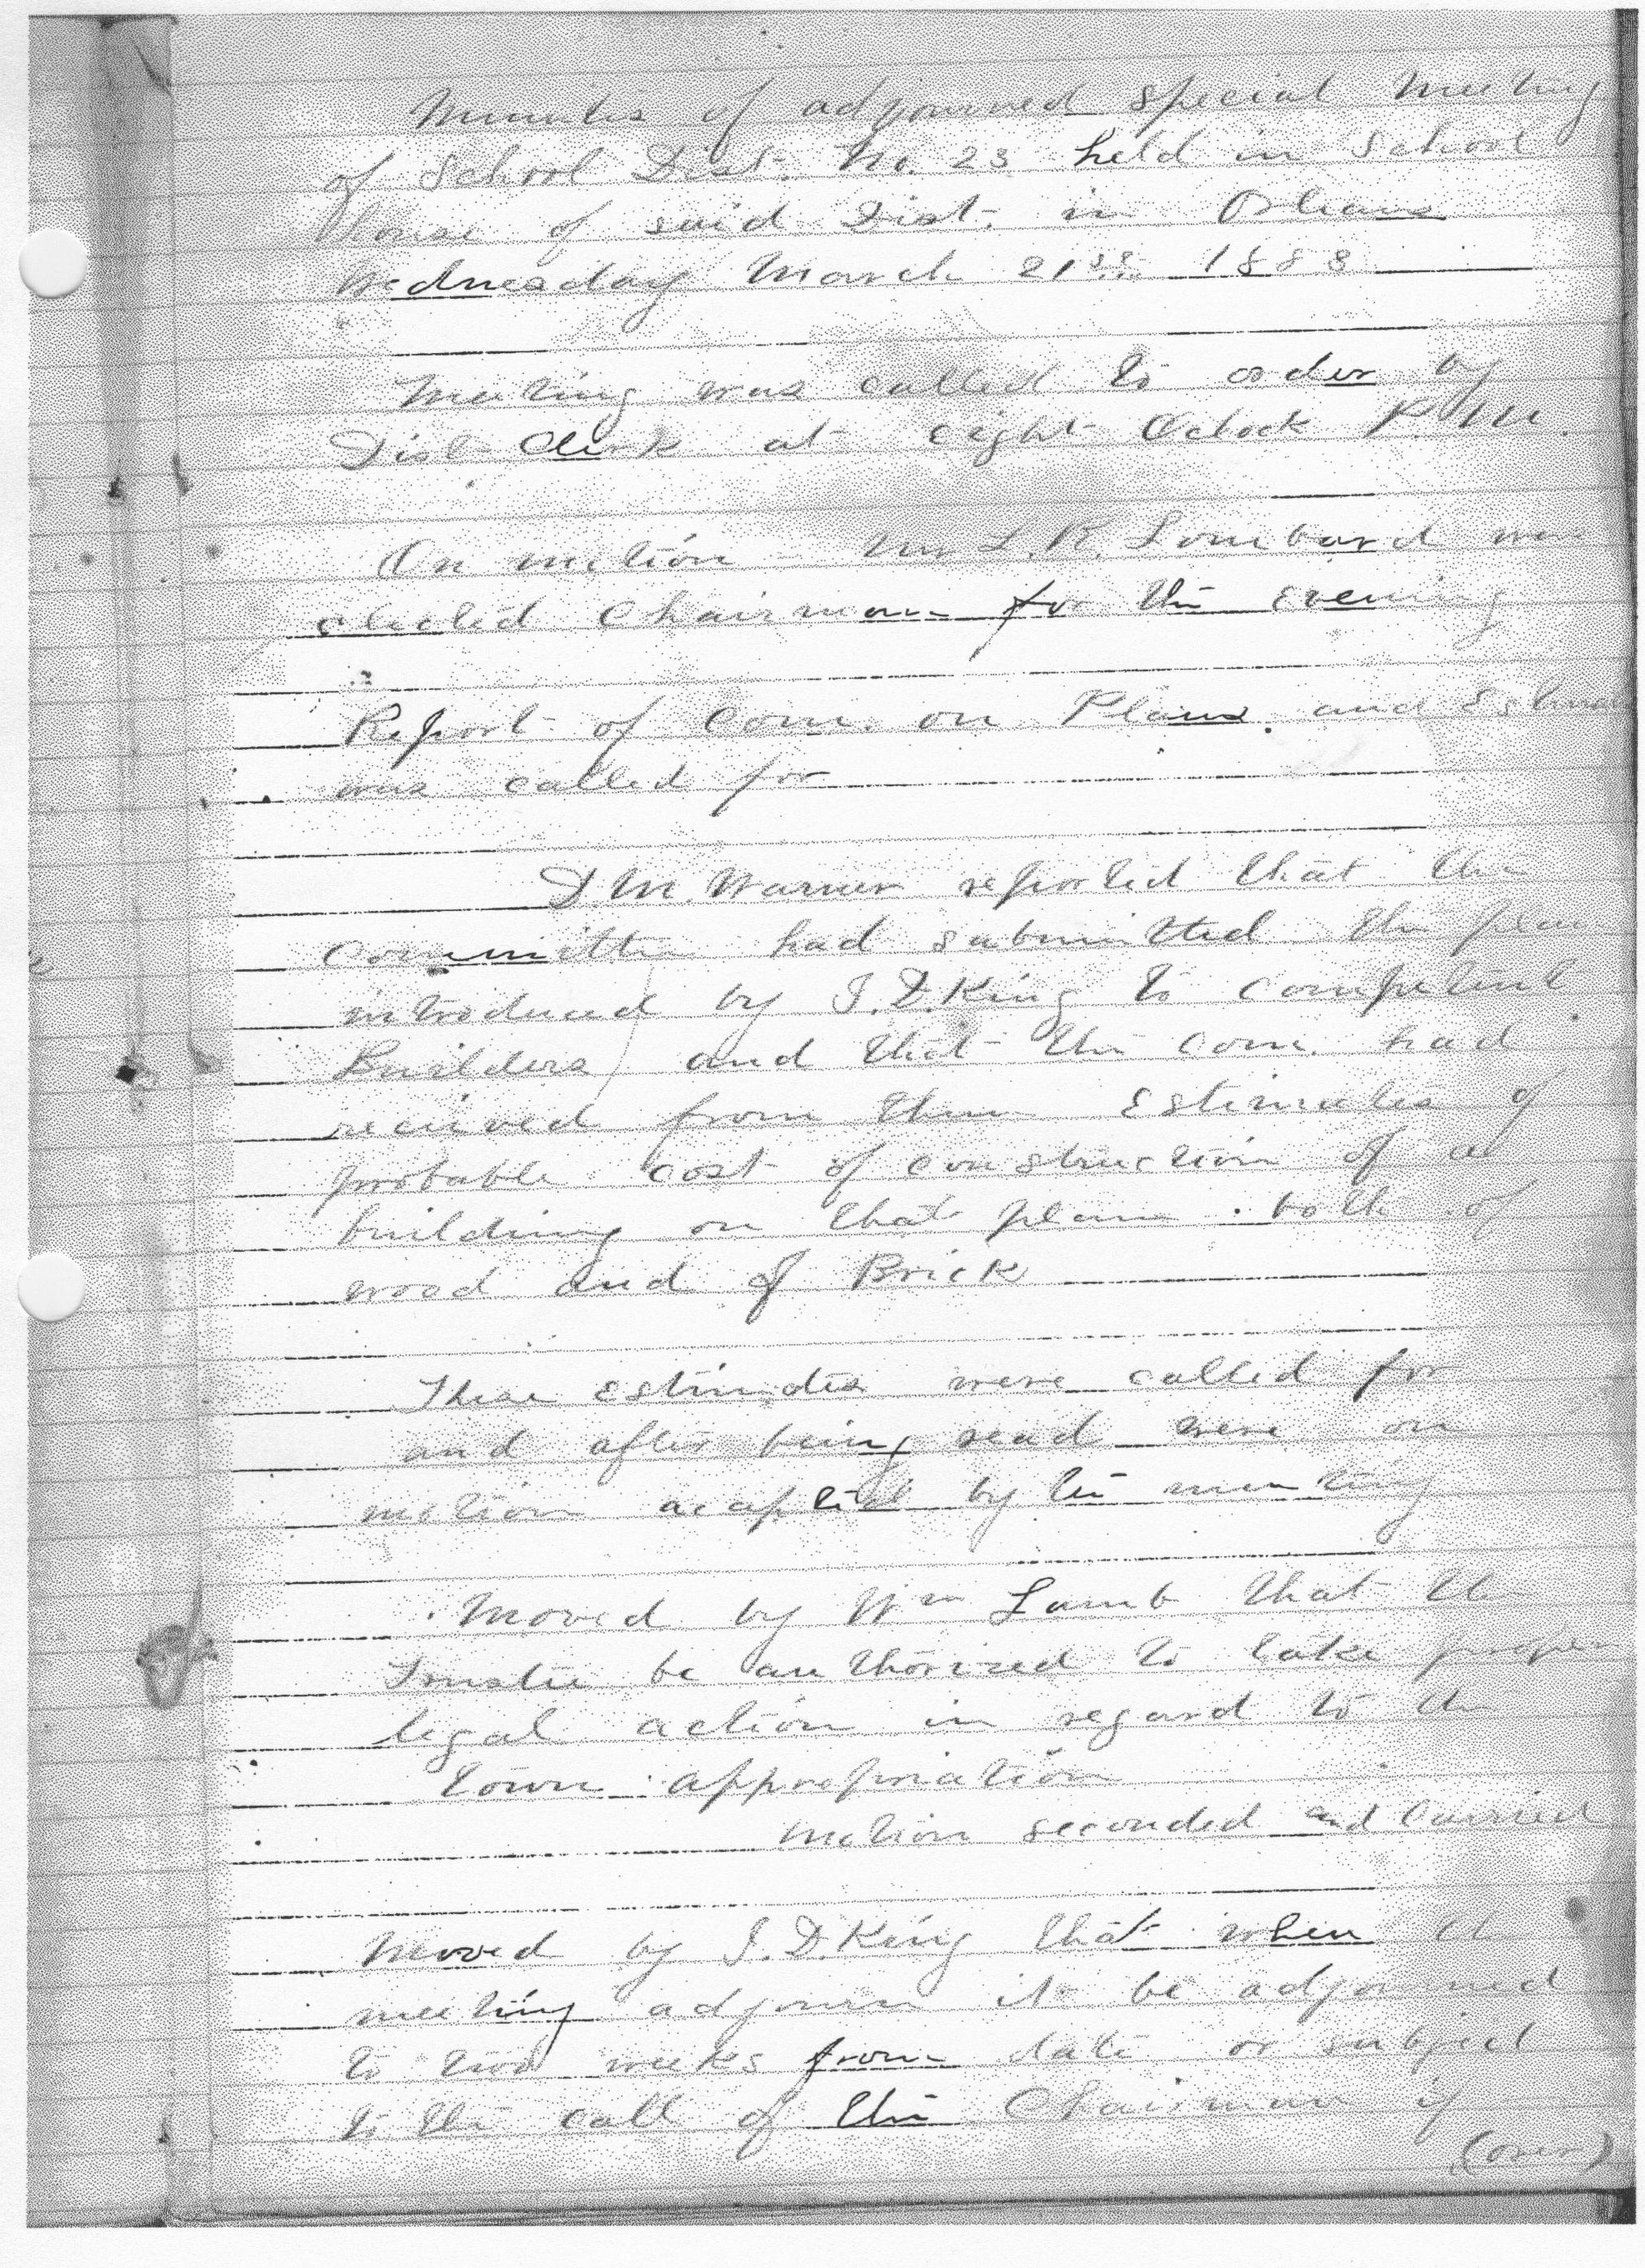 Minutes of adjourned special meeting
of School Dist. No. 23 held in School
house of said Dist. in Orleans
Wednesday March 21st 1883
Meeting was called to order by
Dist Clerk at eight Oclock P. M.
On motion Mr L. R. Lombard was
elected Chairman for the evening
Report of Com. on Plans and
was called for
D. M. Warner reported that the
committee had submitted the plan
introduced by I. D. King to competent
Builders and that the com. had
recieved from them Estimates of
probable cost of construction of a
building on that plan both of
wood and of Brick
These estimates were called for
and after being read were on
motion accepted by the meeting
Moved by Wm Lamb that the
Trustee be authorized to take proper
legal action in regard to the
town appropriation
Motion seconded and carried
Moved by I. D. King that when the
meeting adjourn it be adjourned
to two weeks from date or subject
to the call of the Chairman if
(over)